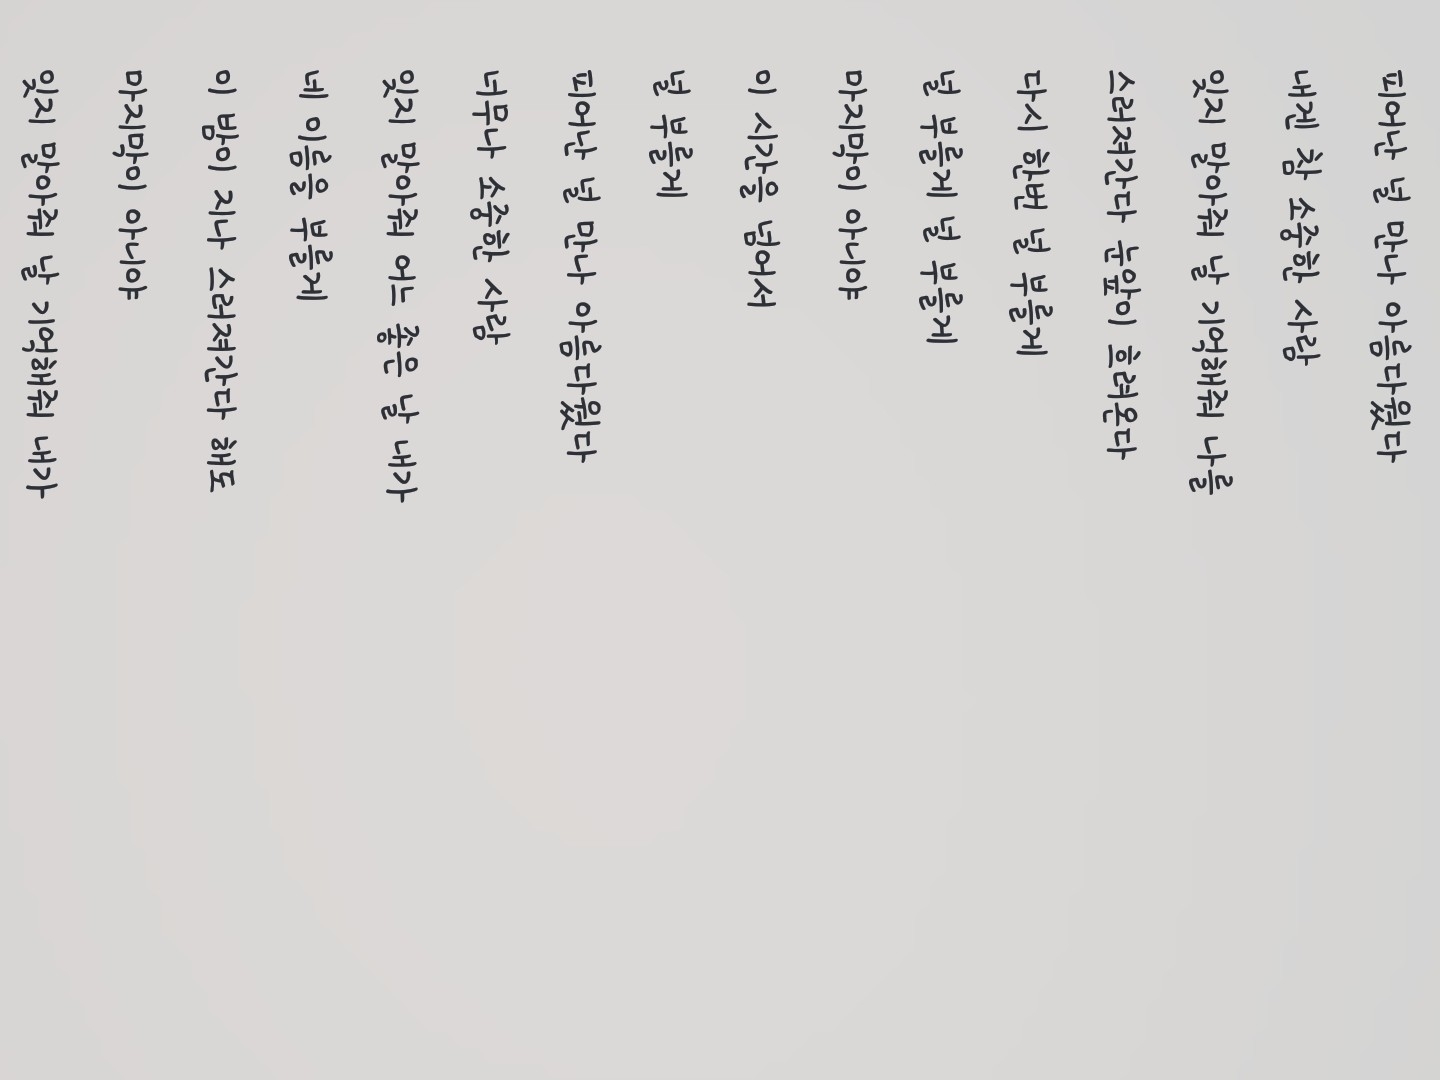 피어난 널 만나 아름다웠다
내겐 참 소중한 사람
잊지 말아줘 날 기억해줘 나를
스러져간다 눈앞이 흐려온다
다시 한번 널 부를게
널 부를게 널 부를게
마지막이 아니야
이 시간을 넘어서
널 부를게
피어난 널 만나 아름다웠다
너무나 소중한 사람
잊지 말아줘 어느 좋은 날 내가
네 이름을 부를게
이 밤이 지나 스러져간다 해도
마지막이 아니야
잊지 말아줘 날 기억해줘 내가